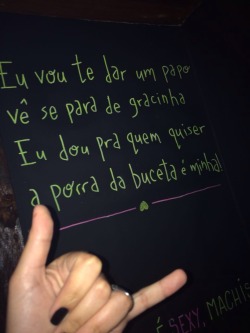 Eu vou te dar um papo
vê se para de gracinha
Eu dou pra quem quiser
a porra da buceta é minha!
É SEXY. MACHIS